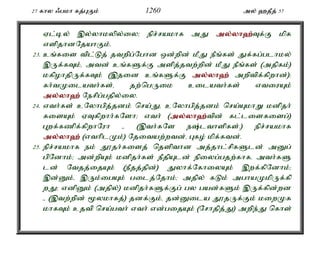 27 கால ஃபமா கத்புகும் 1260 அல் ஹதீத் 57
ஏட்டில் இல்லாமலில்லை; நிச்சயமாக அது அல்லாஹ்வுக்கு மிக
எளிதானதேயாகும்.
23. உங்களை விட்டுத் தவறிப்போன ஒன்றின் மீது நீங்கள் துக்கப்படாமல்
இருக்கவும், அவன் உங்களுக்கு அளித்தவற்றின் மீது நீங்கள் (அதிகம்)
மகிழாதிருக்கவும் (இதனை உங்களுக்கு அல்லாஹ் அறிவிக்கிறான்);
கர்வமுடையவர்கள், தற்பெருமை உடையவர்கள் எவரையும்
அல்லாஹ் நேசிப்பதில்லை.
24. எவர்கள் உலோபித்தனம் செய்து, உலோபித்தனம் செய்யுமாறு மனிதர்
களையும் ஏவுகிறார்களோ; எவர் (அல்லாஹ்வின் கட்டளைகளைப்)
புறக்கணிக்கிறாரோ - (இவர்களே நஷ்டவாளிகள்.) நிச்சயமாக
அல்லாஹ் (எவரிடமும்) தேவையற்றவன், புகழ் மிக்கவன்.
25. நிச்சயமாக நம் தூதர்களைத் தெளிவான அத்தாட்சிகளுடன் அனுப்
பினோம்; அன்றியும் மனிதர்கள் நீதியுடன் நிலைப்பதற்காக, அவர்களு
டன் வேதத்தையும் (நீதத்தின்) துலாக்கோலையும் இறக்கினோம்;
இன்னும், இரும்பையும் படைத்தோம்; அதில் கடும் அபாயமுமிருக்கி
றது; எனினும் (அதில்) மனிதர்களுக்குப் பல பயன்களும் இருக்கின்றன
- (இவற்றின் மூலமாகத்) தனக்கும், தன்னுடைய தூதருக்கும் மறைமுக
மாகவும் உதவி செய்பவர் எவர் என்பதையும் (சோதித்து) அறிந்து கொள்